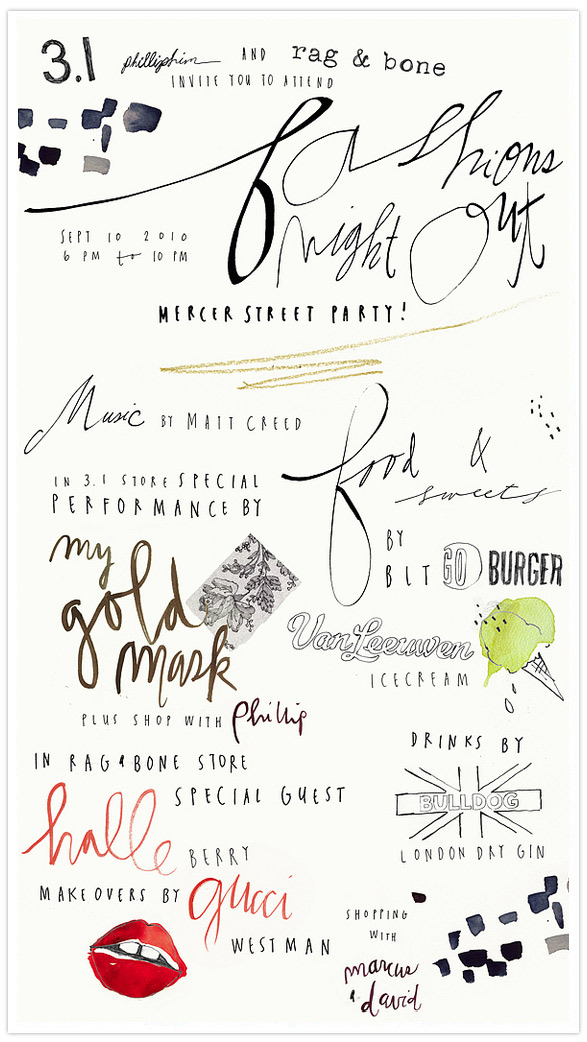 3.1 philliplim AND rag & bone
INVITE YOU TO ATTEND
fashions
night Out
SEPT 10 2010
6 PM to 10 PM
MERCER STREET PARTY!
Music BY MATT CREED
food &
sweets
IN 3.1 STORE SPECIAL
PERFORMANCE BY
my
gold
mask
BY
BLT GO BURGER
VanLeeuwen
ICECREAM
PLUS SHOP WITH Phillip
DRINKS BY
BULLDOG
LONDON DRY GIN
IN RAG & BONE STORE
SPECIAL GUEST
halle BERRY
MAKEOVERS BY gucci
WESTMAN
SHOPPING
WITH
marcus
& david